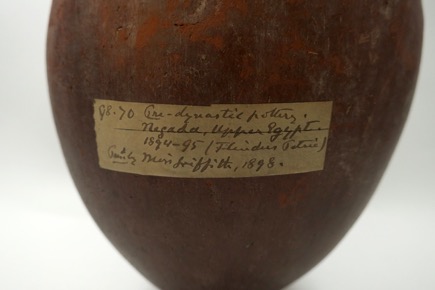 98.70 Pre-dynastic pottery.
Negada, Upper Egypt.
1894-95 (Flinders Petrie)
Miss Griffith, 1898.